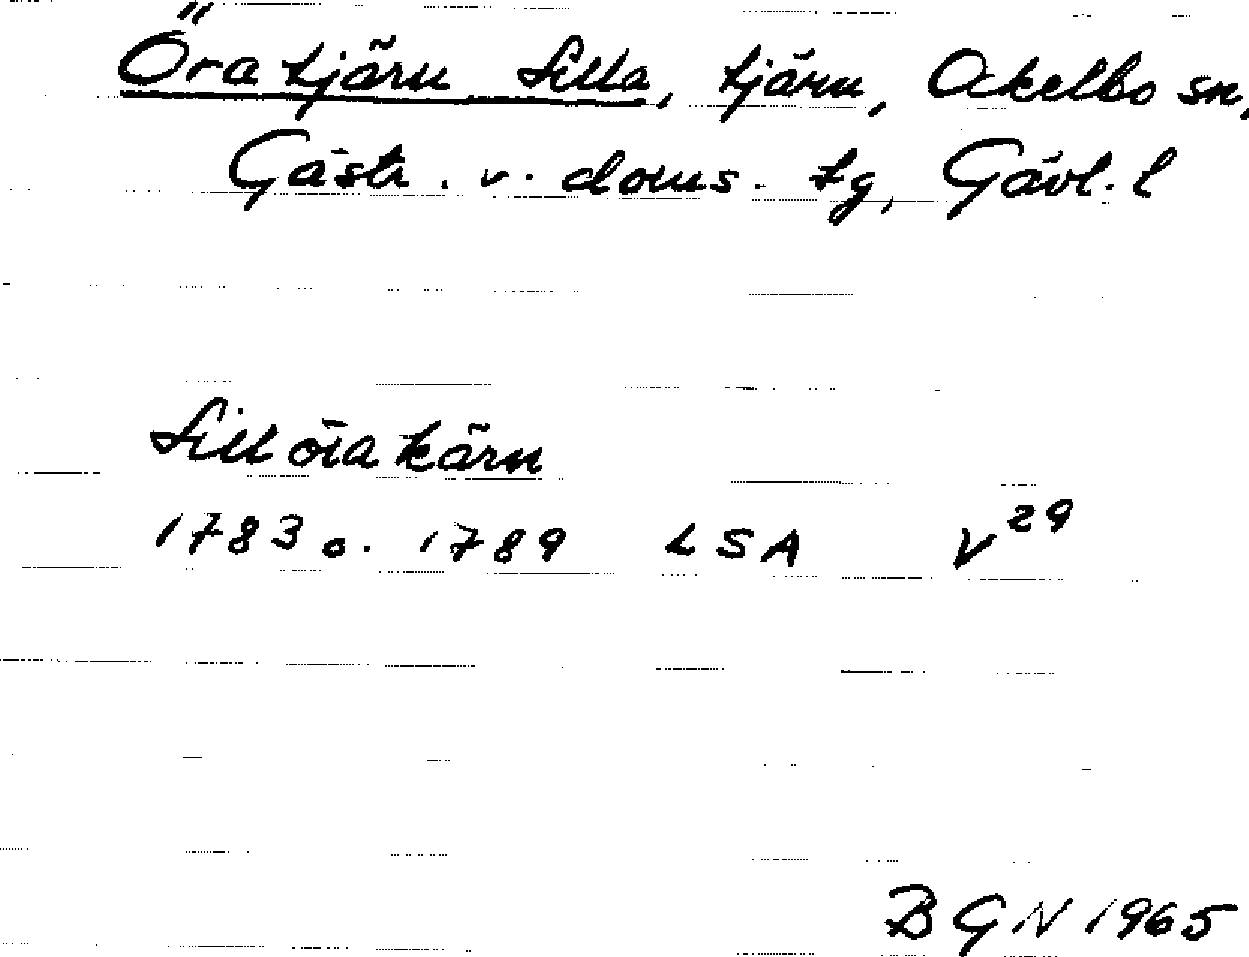 Öratjärn Lilla, tjärn, Ockelbo sn,
Gästr. v. doms. tg, Gävl. l
Lill öra kärn
1783 o. 1789 LSA V 29
BGN 1965